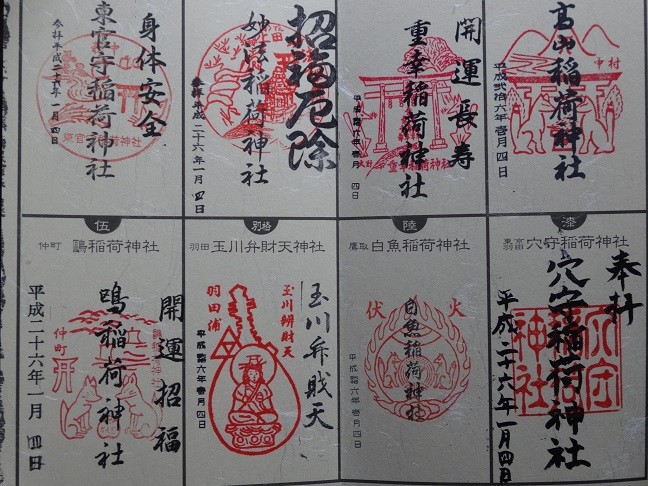 身体安全
東官守稲荷神社
参拝平成二十六年一月四日
東官守稲荷神社
招福厄除
妙法稲荷神社
参拝平成二十六年一月四日
開運長寿
重幸稲荷神社
重幸稲荷神社
高山稲荷神社
中村
平成弐拾六年壱月四日
伍
仲町 鷗稲荷神社
開運招福
鷗稲荷神社
仲町
平成二十六年一月四日
別格
羽田 玉川弁財天神社
玉川弁財天
玉川辨財天
羽田浦
平成貳拾六年壱月四日
陸
鷹取 白魚稲荷神社
火
伏
白魚稲荷神社
平成貳拾六年壱月四日
漆
穴守稲荷神社
奉拝
穴守稲荷神社
平成二十六年一月四日